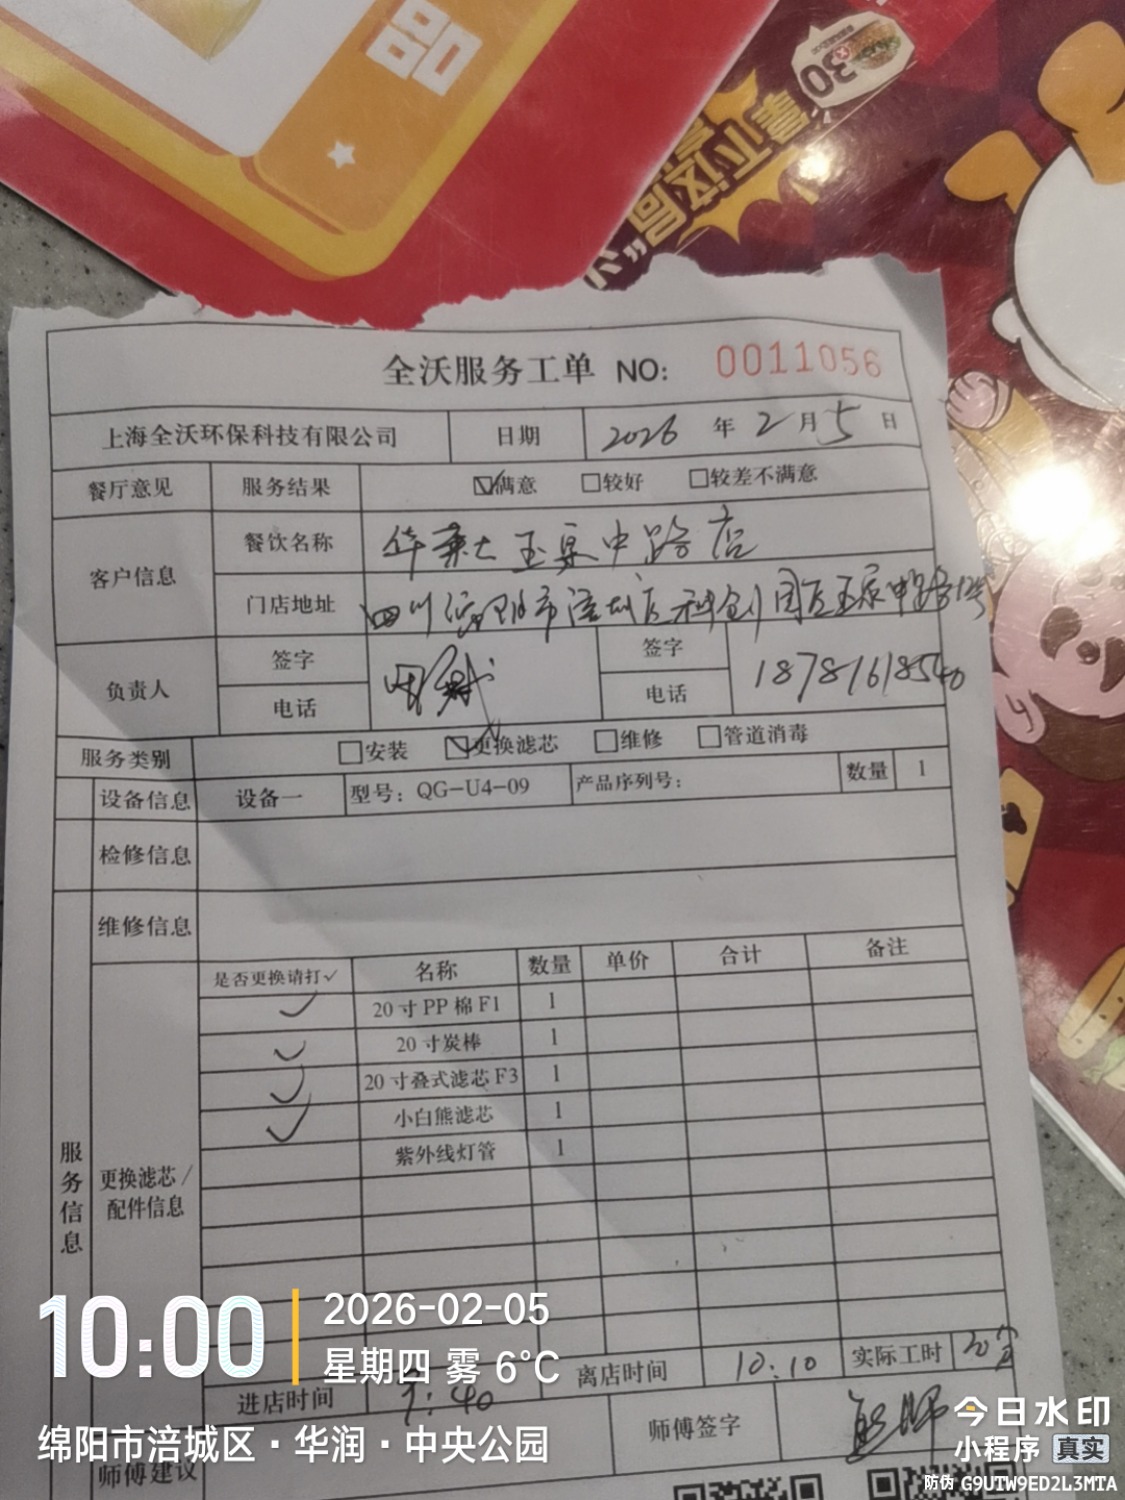 品
30
拿不这局
全沃服务工单 NO: 0011056
上海全沃环保科技有限公司 日期 2026 年 2 月 5 日
餐厅意见 服务结果 ☑满意 □较好 □较差不满意
客户信息 餐饮名称 华莱士玉泉中路店
门店地址 四川绵阳市涪城区科创园区玉泉中路12号
负责人 签字 签字
电话 电话 18781618540
服务类别 □安装 ☑更换滤芯 □维修 □管道消毒
设备信息 设备一 型号：QG-U4-09 产品序列号： 数量 1
检修信息
维修信息
是否更换请打✓ 名称 数量 单价 合计 备注
✓ 20寸PP棉F1 1
✓ 20寸炭棒 1
✓ 20寸叠式滤芯F3 1
✓ 小白熊滤芯 1
紫外线灯管 1
服务信息
更换滤芯/
配件信息
进店时间 9:40 离店时间 10:10 实际工时
师傅签字
师傅建议
10:00
2026-02-05
星期四 雾 6°C
绵阳市涪城区·华润·中央公园
今日水印
小程序 真实
防伪 G9UTW9ED2L3MTA